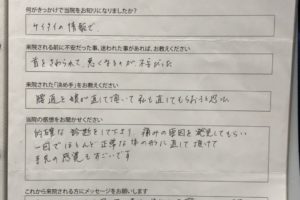 何がきっかけで当院をお知りになりましたか?
ケイタイの情報で
来院される前に不安だった事、迷われた事があれば、お教えください
首をさわられて、悪くなるのが不安だった
来院された「決め手」をお教えください
腰通と膝が直して頂いて私も直してもらおうと思い
当院の感想をお聞かせください
的確な診断をして下さり、痛みの原因を発見してもらい
一回でほとんど正常な体の形に直して頂けて
手先の感覚もすごいです
これから来院される方にメッセージをお願いします